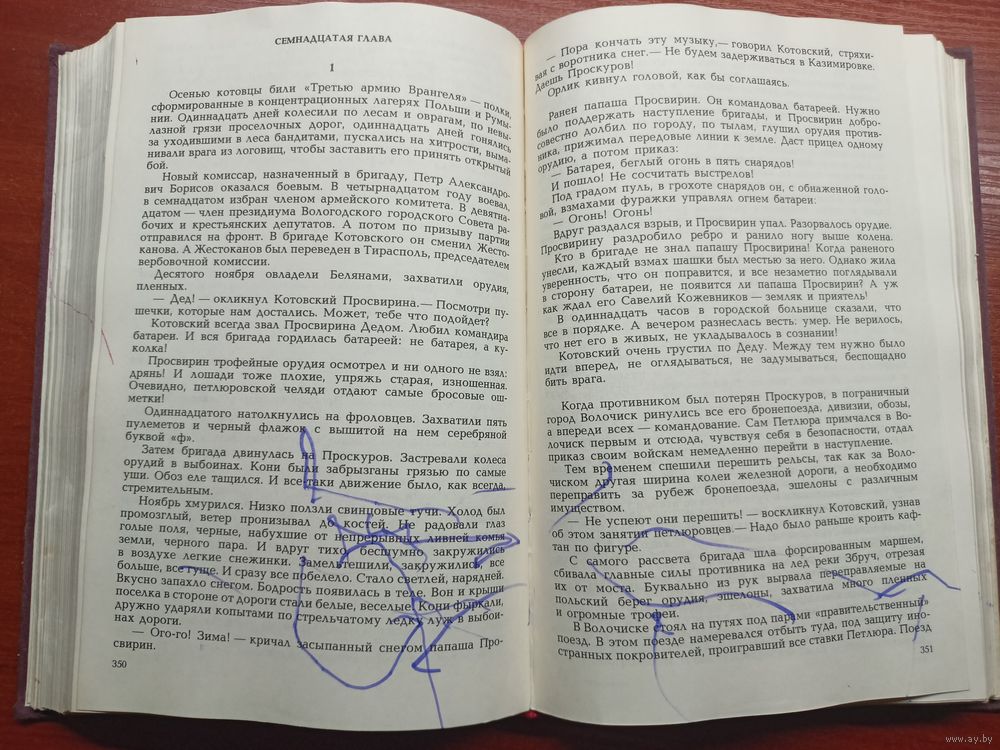 СЕМНАДЦАТАЯ ГЛАВА
1
Осенью котовцы били «Третью армию Врангеля» — полки,
сформированные в концентрационных лагерях Польши и Румы-
нии. Одиннадцать дней колесили по лесам и оврагам, по невы-
лазной грязи проселочных дорог, одиннадцать дней гонялись
за уходившими в леса бандитами, пускались на хитрости, выма-
нивали врага из логовищ, чтобы заставить его принять открытый
бой.
Новый комиссар, назначенный в бригаду, Петр Александро-
вич Борисов оказался боевым. В четырнадцатом году воевал,
в семнадцатом избран членом армейского комитета. В девятна-
дцатом — член президиума Вологодского городского Совета ра-
бочих и крестьянских депутатов. А потом по призыву партии
отправился на фронт. В бригаде Котовского он сменил Жесто-
канова. А Жестоканов был переведен в Тирасполь, председателем
вербовочной комиссии.
Десятого ноября овладели Белянами, захватили орудия,
пленных.
— Дед! — окликнул Котовский Просвирина.— Посмотри пу-
шечки, которые нам достались. Может, тебе что подойдет?
Котовский всегда звал Просвирина Дедом. Любил командира
батареи. И вся бригада гордилась батареей: не батарея, а ку-
колка!
Просвирин трофейные орудия осмотрел и ни одного не взял:
дрянь! И лошади тоже плохие, упряжь старая, изношенная.
Очевидно, петлюровской челяди отдают самые бросовые ош-
метки!
Одиннадцатого натолкнулись на фроловцев. Захватили пять
пулеметов и черный флажок с вышитой на нем серебряной
буквой «ф».
Затем бригада двинулась на Проскуров. Застревали колеса
орудий в выбоинах. Кони были забрызганы грязью по самые
уши. Обоз еле тащился. И все-таки движение было, как всегда,
стремительным.
Ноябрь хмурился. Низко ползли свинцовые тучи. Холод был
промозглый, ветер пронизывал до костей. Не радовали глаз
голые поля, черные, набухшие от непрерывных ливней комья
земли, черного пара. И вдруг тихо, бесшумно закружились
в воздухе легкие снежинки. Замельтешили, закружились, все
больше, все гуще. И сразу все побелело. Стало светлей, нарядней.
Вкусно запахло снегом. Бодрость появилась в теле. Вон и крыши
поселка в стороне от дороги стали белые, веселые. Кони фыркали,
дружно ударяли копытами по стрельчатому ледку луж в выбои-
нах дороги.
— Ого-го! Зима! — кричал засыпанный снегом папаша Про-
свирин.
350
— Пора кончать эту музыку,— говорил Котовский, стряхи-
вая с воротника снег.— Не будем задерживаться в Казимировке.
Даешь Проскуров!
Орлик кивнул головой, как бы соглашаясь.
Ранен папаша Просвирин. Он командовал батареей. Нужно
было поддержать наступление бригады, и Просвирин добро-
совестно долбил по городу, по тылам, глушил орудия против-
ника, прижимал передовые линии к земле. Даст прицел одному
орудию, а потом приказ:
— Батарея, беглый огонь в пять снарядов!
И пошло! Не сосчитать выстрелов!
Под градом пуль, в грохоте снарядов он, с обнаженной голо-
вой, взмахами фуражки управлял огнем батареи:
— Огонь! Огонь!
Вдруг раздался взрыв, и Просвирин упал. Разорвалось орудие.
Просвирину раздробило ребро и ранило ногу выше колена.
Кто в бригаде не знал папашу Просвирина! Когда раненого
унесли, каждый взмах шашки был местью за него. Однако жила
уверенность, что он поправится, и все незаметно поглядывали
в сторону батареи, не появится ли папаша Просвирин? А уж
как ждал его Савелий Кожевников — земляк и приятель!
В одиннадцать часов в городской больнице сказали, что
все в порядке. А вечером разнеслась весть: умер. Не верилось,
что нет его в живых, не укладывалось в сознании!
Котовский очень грустил по Деду. Между тем нужно было
идти вперед, не оглядываться, не задумываться, беспощадно
бить врага.
Когда противником был потерян Проскуров, в пограничный
город Волочиск ринулись все его бронепоезда, дивизии, обозы,
а впереди всех — командование. Сам Петлюра примчался в Во-
лочиск первым и отсюда, чувствуя себя в безопасности, отдал
приказ своим войскам немедленно перейти в наступление.
Тем временем спешили перешить рельсы, так как за Воло-
чиском другая ширина колеи железной дороги, а необходимо
переправить за рубеж бронепоезда, эшелоны с различным
имуществом.
— Не успеют они перешить! — воскликнул Котовский, узнав
об этом занятии петлюровцев.— Надо было раньше кроить каф-
тан по фигуре.
С самого рассвета бригада шла форсированным маршем,
сбивала главные силы противника на лед реки Збруч, отрезая
их от моста. Буквально из рук вырвала переправляемые на
польский берег орудия, эшелоны, захватила много пленных
и огромные трофеи.
В Волочиске стоял на путях под парами «правительственный»
поезд. В этом поезде намеревался отбыть туда, под защиту ино-
странных покровителей, проигравший все ставки Петлюра. Поезд
351
www.ay.by